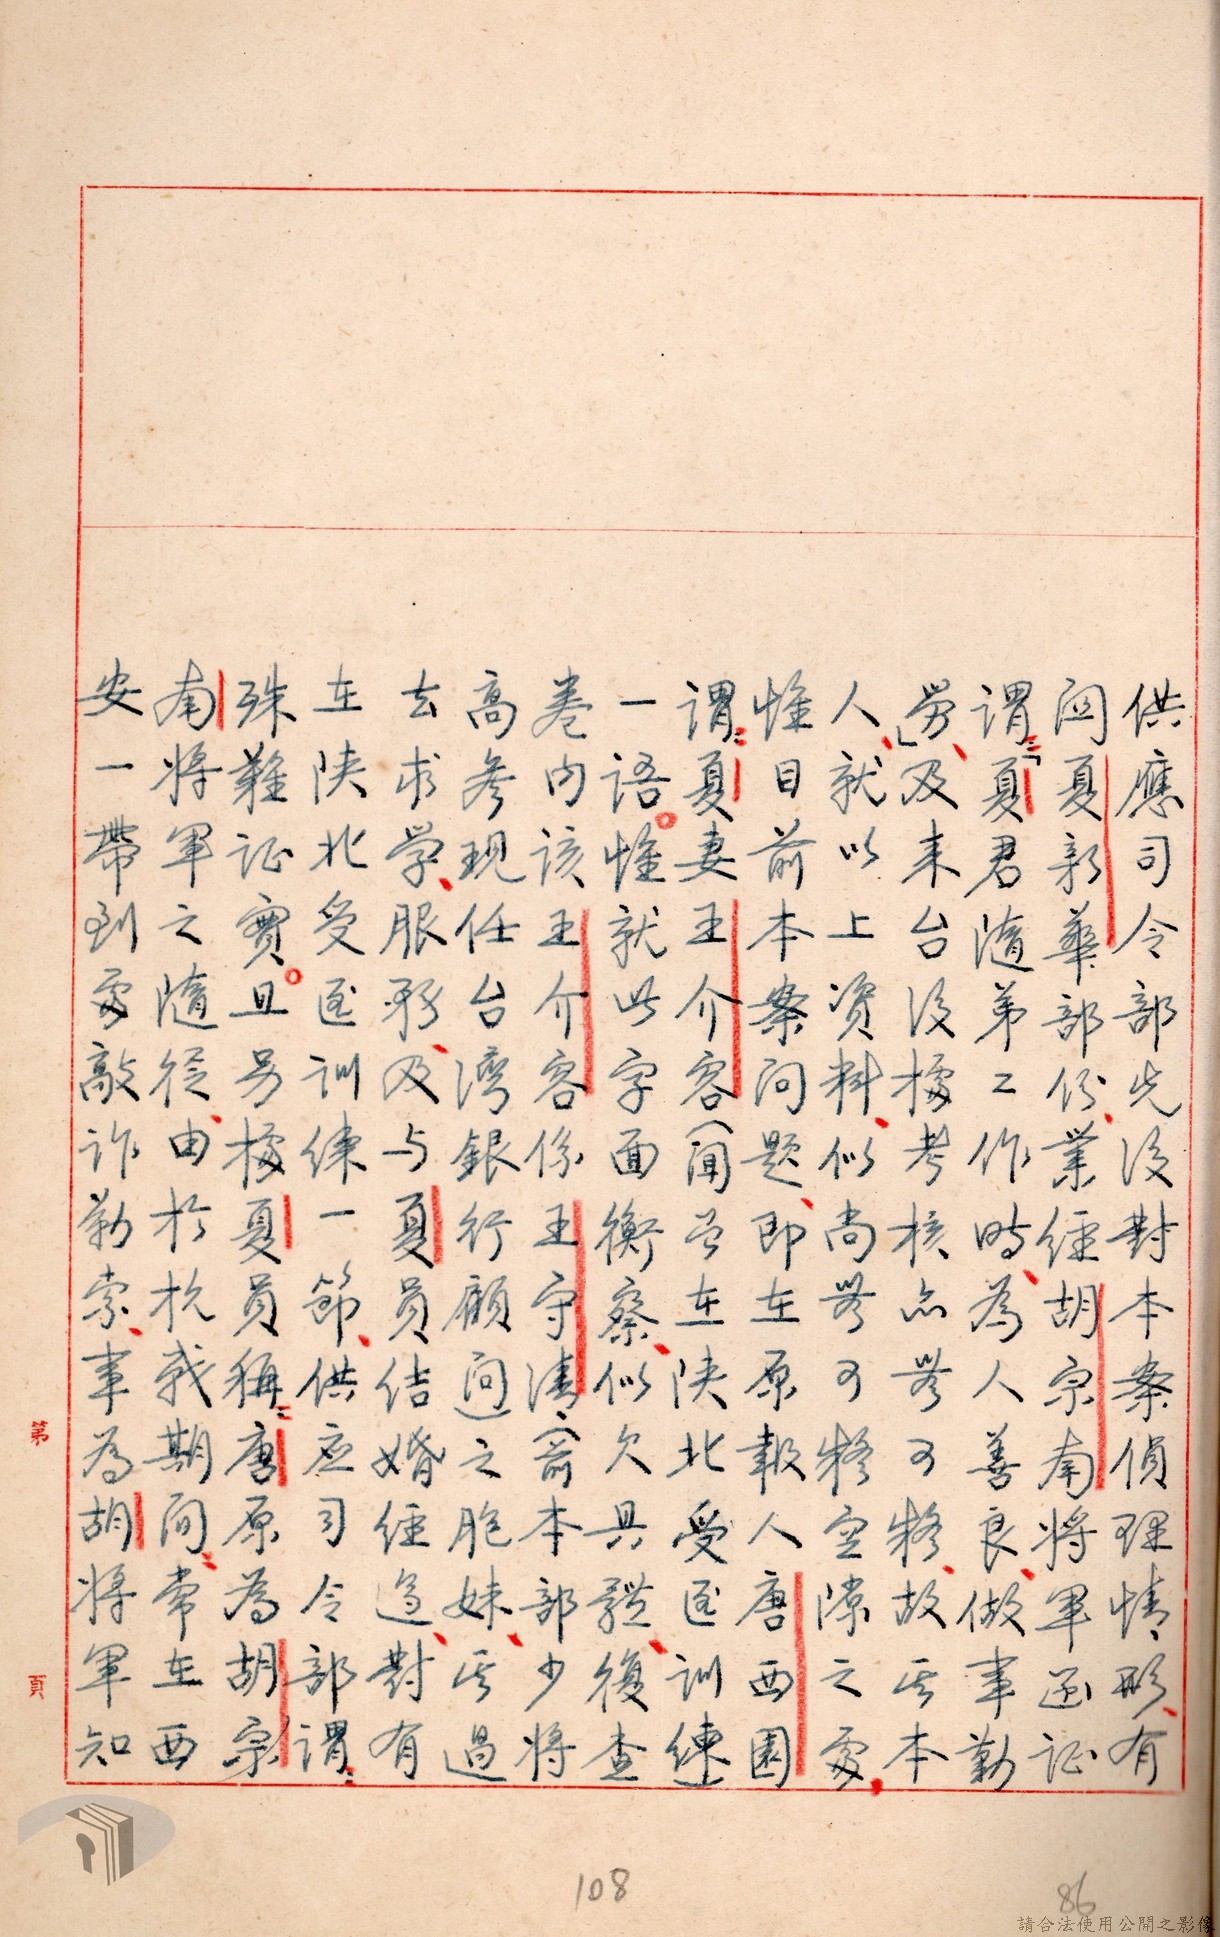 供應司令部先後對本案偵理情形、有
関夏新華部份、業經胡宗南將軍函証
謂:「夏君隨弟工作時、為人善良、做事勤
勞」、及来台後據考核亦無可疑、故其本
人、就以上資料、似尚無可疑空隙之處、
惟目前本案问題、即在原報人唐西園
謂:夏妻王介容(聞曾在陝北受匪訓練)
一語。惟就此字面衡察、似欠具體、復查
卷内該王介容係王守清(前本部少將
高參現任台湾銀行顧问)之胞妹、其過
去求学、服務、及与夏員结婚經過、對有
在陕北受匪訓练一節、供应司令部謂:
殊難证實。且另據夏員稱:唐原為胡宗
南將軍之隨從、由於抗戰期间、常在西
安一帶到處敲诈勒索、事为胡將軍知
第
頁
108
86
請合法使用公開之影像